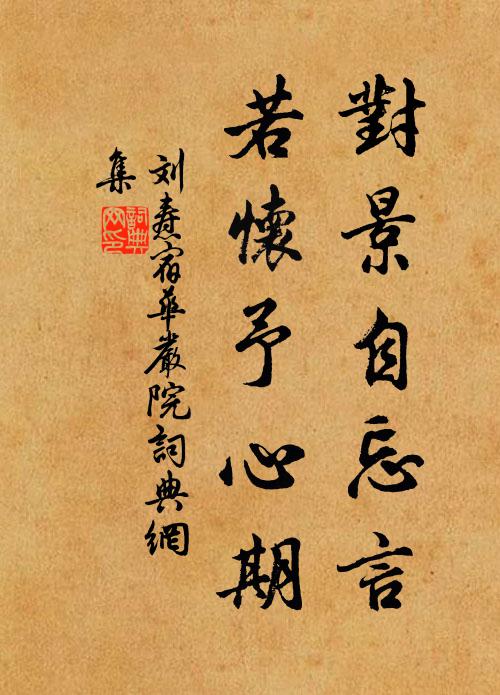 對景自忘言
若懷予心期
刘焘宿華嚴院詞典網
集
詞典
网印